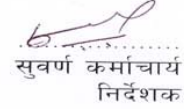 सुवर्ण कर्माचार्य
निर्देशक